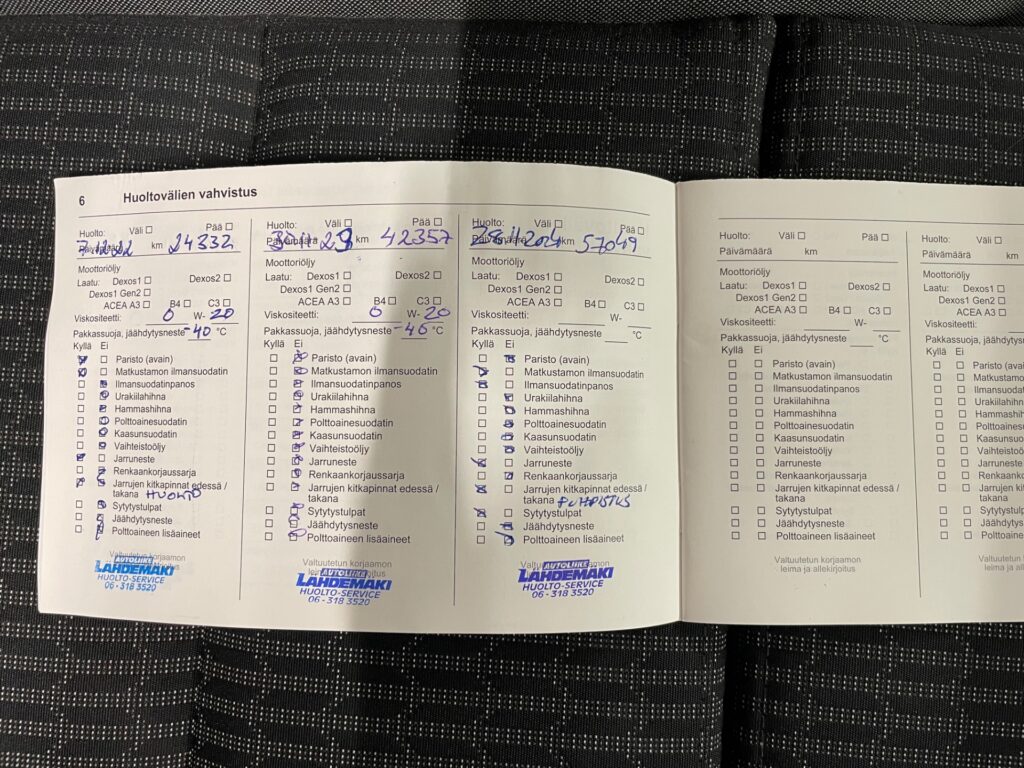 6 Huoltovälien vahvistus
Huolto: Väli Pää
Päivämäärä km
7.12.22 24332
Moottoriöljy
Laatu: Dexos1 Dexos2
Dexos1 Gen2
ACEA A3 B4 C3
Viskositeetti: 0 W- 20
Pakkassuoja, jäähdytysneste -40 °C
Kyllä Ei
Paristo (avain)
Matkustamon ilmansuodatin
Ilmansuodatinpanos
Urakiilahihna
Hammashihna
Polttoainesuodatin
Kaasunsuodatin
Vaihteistoöljy
Jarruneste
Renkaankorjaussarja
Jarrujen kitkapinnat edessä /
takana HUOLTO
Sytytystulpat
Jäähdytysneste
Polttoaineen lisäaineet
Valtuutetun korjaamon
AUTOLIIKE
LAHDEMÄKI
HUOLTO-SERVICE
06 - 318 3520
Huolto: Väli Pää
Päivämäärä km 42357
Moottoriöljy
Laatu: Dexos1 Dexos2
Dexos1 Gen2
ACEA A3 B4 C3
Viskositeetti: 0 W- 20
Pakkassuoja, jäähdytysneste -40 °C
Kyllä Ei
Paristo (avain)
Matkustamon ilmansuodatin
Ilmansuodatinpanos
Urakiilahihna
Hammashihna
Polttoainesuodatin
Kaasunsuodatin
Vaihteistoöljy
Jarruneste
Renkaankorjaussarja
Jarrujen kitkapinnat edessä /
takana
Sytytystulpat
Jäähdytysneste
Polttoaineen lisäaineet
Valtuutetun korjaamon
AUTOLIIKE
LAHDEMÄKI
HUOLTO-SERVICE
06 - 318 3520
Huolto: Väli Pää
Päivämäärä km 57049
Moottoriöljy
Laatu: Dexos1 Dexos2
Dexos1 Gen2
ACEA A3 B4 C3
Viskositeetti: W-
Pakkassuoja, jäähdytysneste °C
Kyllä Ei
Paristo (avain)
Matkustamon ilmansuodatin
Ilmansuodatinpanos
Urakiilahihna
Hammashihna
Polttoainesuodatin
Kaasunsuodatin
Vaihteistoöljy
Jarruneste
Renkaankorjaussarja
Jarrujen kitkapinnat edessä /
takana PUHDISTUS
Sytytystulpat
Jäähdytysneste
Polttoaineen lisäaineet
AUTOLIIKE
LAHDEMÄKI
HUOLTO-SERVICE
06 - 318 3520
Huolto: Väli Pää
Päivämäärä km
Moottoriöljy
Laatu: Dexos1 Dexos2
Dexos1 Gen2
ACEA A3 B4 C3
Viskositeetti: W-
Pakkassuoja, jäähdytysneste °C
Kyllä Ei
Paristo (avain)
Matkustamon ilmansuodatin
Ilmansuodatinpanos
Urakiilahihna
Hammashihna
Polttoainesuodatin
Kaasunsuodatin
Vaihteistoöljy
Jarruneste
Renkaankorjaussarja
Jarrujen kitkapinnat edessä /
takana
Sytytystulpat
Jäähdytysneste
Polttoaineen lisäaineet
Valtuutetun korjaamon
leima ja allekirjoitus
Huolto: Väli
Päivämäärä km
Moottoriöljy
Laatu: Dexos1
Dexos1 Gen2
ACEA A3
Viskositeetti:
Pakkassuoja, jäähdytysneste
Kyllä Ei
Paristo (avain)
Matkustamon
Ilmansuodatin
Urakiilahihna
Hammashihna
Polttoainesuo
Kaasunsuodat
Vaihteistoöljy
Jarruneste
Renkaankorja
Jarrujen kitka
takana
Sytytystulpat
Jäähdytysneste
Polttoaineen
Valtuutetun
leima ja